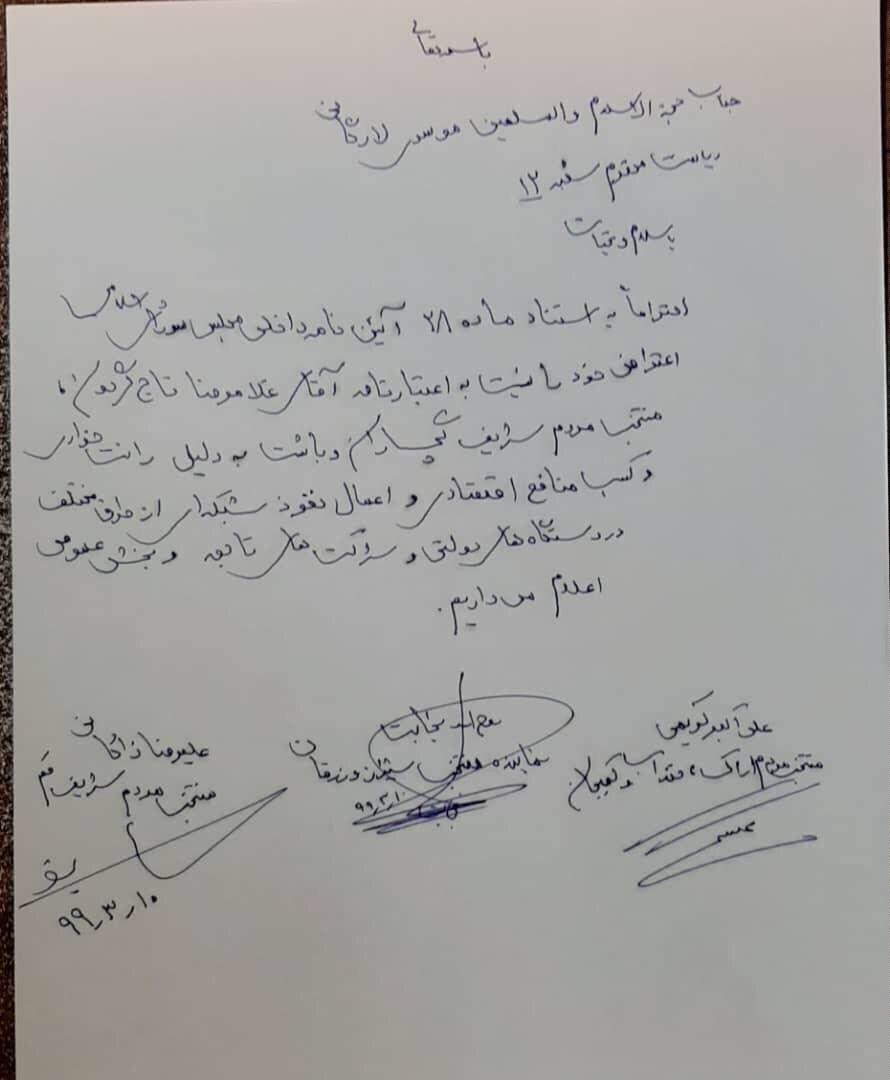 باسمه تعالی
جناب حجة الاسلام والمسلمین موسوی لارگانی
ریاست محترم شعبه ۱۲
باسلام و تحیات
احتراماً به استناد ماده ۲۸ آئین نامه داخلی مجلس شورای اسلامی
اعتراض خود را نسبت به اعتبارنامه آقای غلامرضا تاج گردون،
منتخب مردم شریف گچساران و باشت به دلیل رانت خواری
و کسب منافع اقتصادی و اعمال نفوذ شبکه ای از طرق مختلف
در دستگاه های دولتی و شرکت های تابعه و بخش عمومی
اعلام می داریم.
علی اکبر کریمی
منتخب مردم اراک،
و کمیجان
روح اله نجابت
نماینده منتخب شیراز و زرقان
۹۹،۳،۱۰
علیرضا زاکانی
منتخب مردم شریف قم
۹۹،۳،۱۰